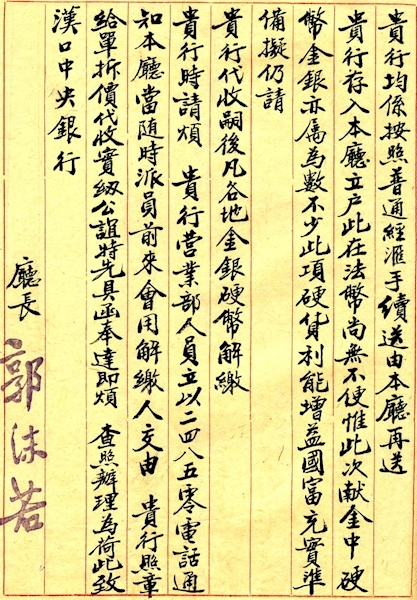 貴行均係按照普通經滙手續送由本廳再送
貴行存入本廳立户此在法幣尚無不便惟此次献金中硬
幣金銀亦属為數不少此項硬貨利能增益國富充實準
備擬仍請
貴行代收嗣後凡各地金銀硬幣解繳
貴行時請煩 貴行营業部人員立以二四八五零電話通
知本廳當随時派員前來會同解繳人交由 貴行照章
給單折價代收實級公誼特先具函奉達即煩 查照辦理為荷此致
漢口中央銀行
廳長 郭沫若